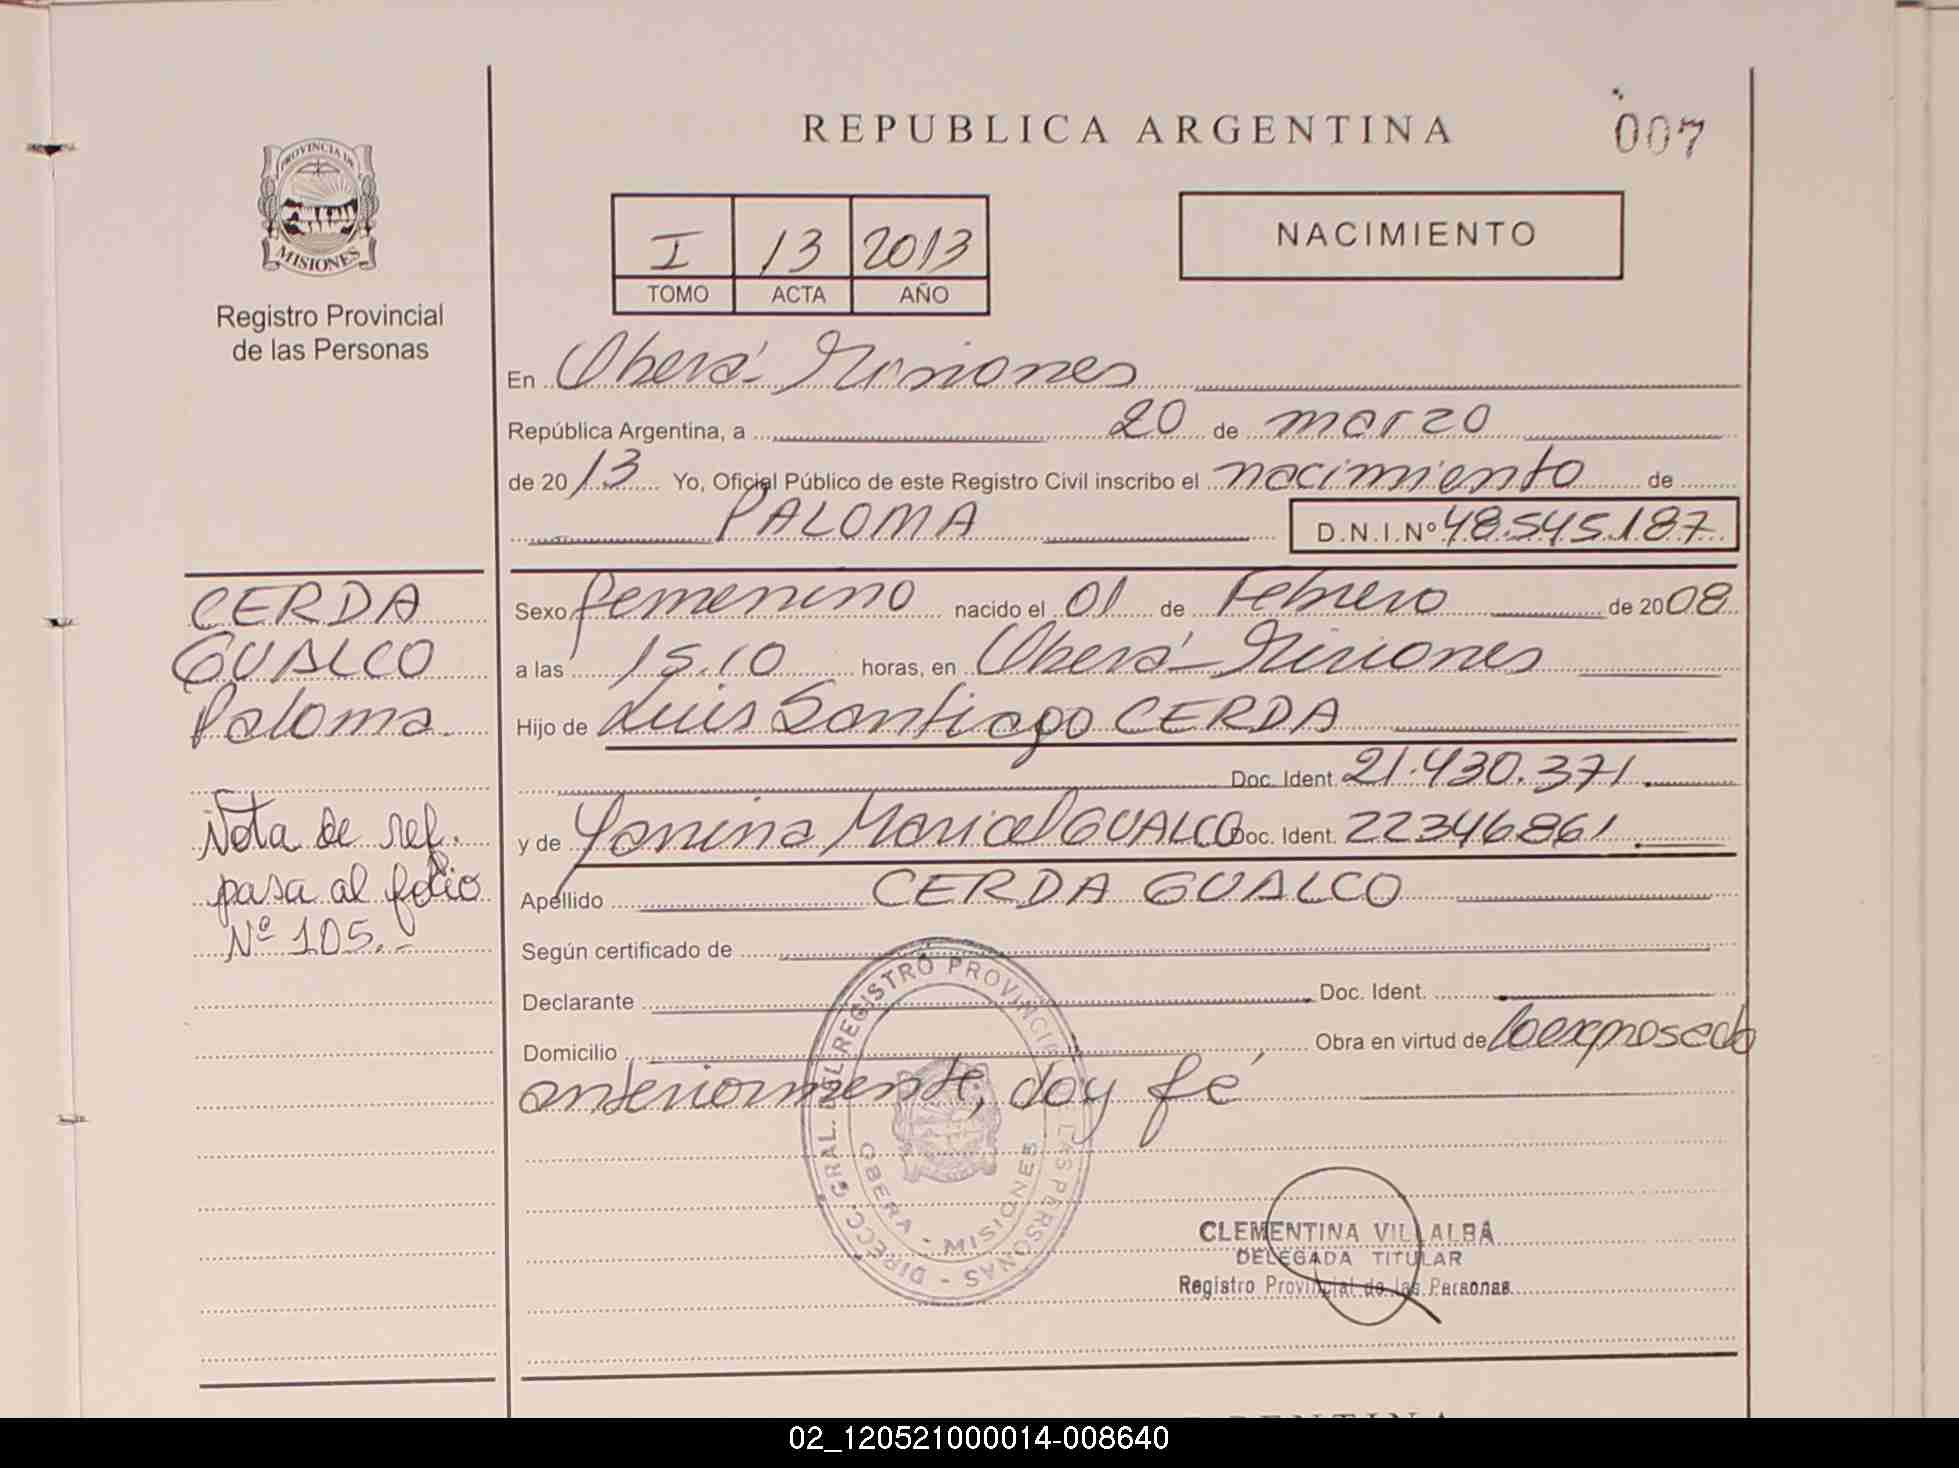 REPUBLICA ARGENTINA
007
PROVINCIA DE
MISIONES
Registro Provincial
de las Personas
I 13 2013
TOMO ACTA AÑO
NACIMIENTO
En Oberá - Misiones
República Argentina, a 20 de marzo
de 2013 Yo, Oficial Público de este Registro Civil inscribo el nacimiento de
PALOMA D.N.I.Nº 48.545.187
CERDA
GUALCO
Paloma
Nota de ref.
pasa al folio
Nº 105.-
Sexo femenino nacido el 01 de Febrero de 2008
a las 15.10 horas, en Oberá - Misiones
Hijo de Luis Santiago CERDA
Doc. Ident. 21.430.371.
y de Yanina Maricel GUALCO Doc. Ident. 22346861.
Apellido CERDA GUALCO
Según certificado de
Declarante Doc. Ident.
Domicilio Obra en virtud de lo expresado
anteriormente, doy fé
DIRECC. GRAL. DEL REGISTRO PROVINCIAL DE LAS PERSONAS -
OBERA - MISIONES
CLEMENTINA VILLALBA
DELEGADA TITULAR
Registro Provincial de las Personas
02_120521000014-008640